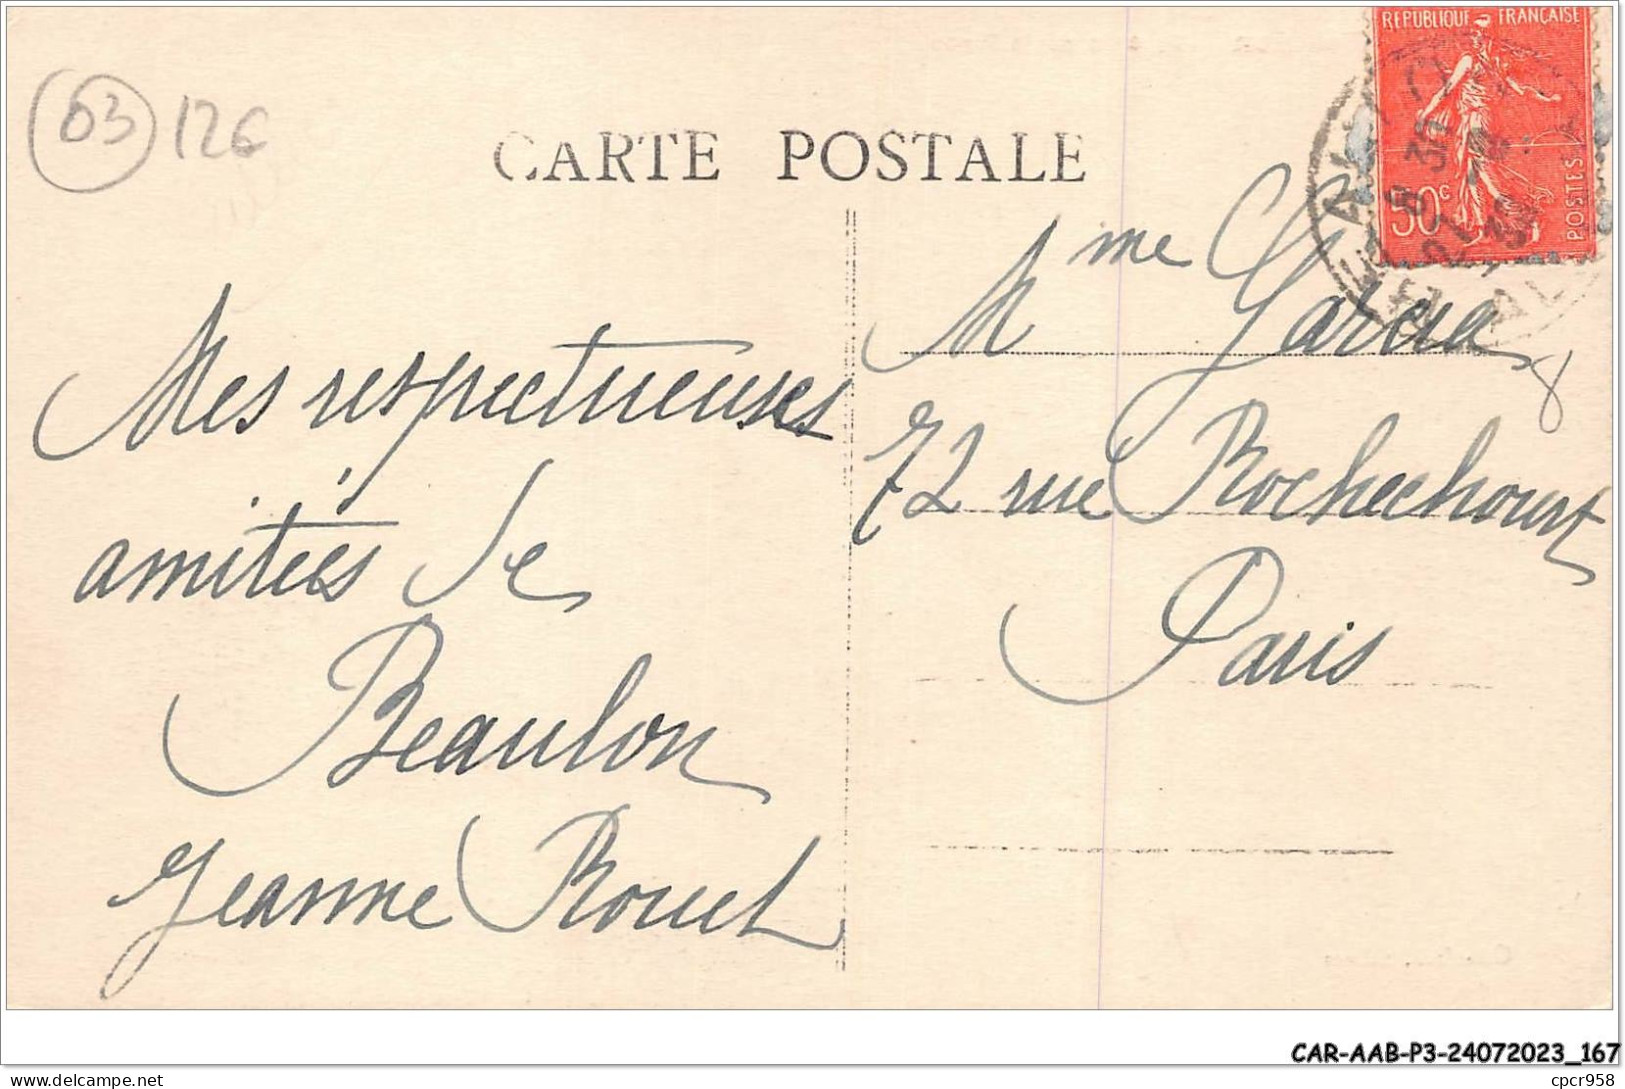 03 126
CARTE POSTALE
REPUBLIQUE FRANÇAISE
50c
POSTES
Mes respectueuses
amitiés de
Beaulon
Jeanne Rouel
Mme Garcia
72 rue Rochechouart
Paris
8
CAR-AAB-P3-24072023_167
cpcr958